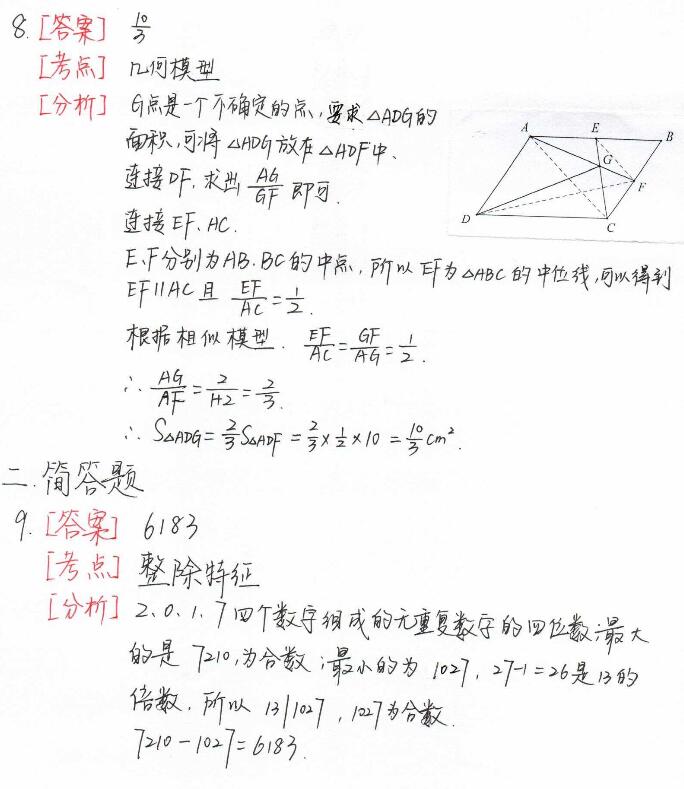 8. [答案] 10/3
[考点] 几何模型
[分析] G点是一个不确定的点,要求△ADG的
面积,可将△ADG放在△ADF中、
连接DF,求出 AG/GF 即可.
连接EF、AC.
E、F分别为AB、BC的中点,所以EF为△ABC的中位线,可以得到
EF∥AC且 EF/AC=1/2.
根据相似模型. EF/AC=GF/AG=1/2.
∴ AG/AF=2/(1+2)=2/3.
∴ S△ADG=2/3S△ADF=2/3×1/2×10=10/3cm².
A E B
G
F
D
C
二.简答题
9. [答案] 6183
[考点] 整除特征
[分析] 2、0、1、7四个数字组成的无重复数字的四位数;最大
的是 7210,为合数;最小的为 1027,27-1=26是13的
倍数,所以 13|1027,1027为合数.
7210-1027=6183.